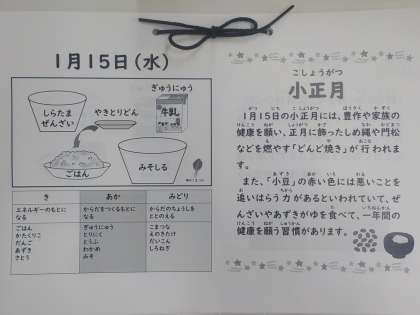 1月15日(水)
ぎゅうにゅう
牛乳
しらたま
ぜんざい
やきとりどん
ごはん
みそしる
き
あか
みどり
エネルギーのもとに
なる
からだをつくるもとに
なる
からだのちょうしを
ととのえる
ごはん
かたくりこ
だんご
あずき
さとう
ぎゅうにゅう
とりにく
とうふ
わかめ
みそ
こまつな
えのきたけ
だいこん
しろねぎ
こしょうがつ
小正月
1月15日の小正月には、豊作や家族の
健康を願い、正月に飾ったしめ縄や門松
などを燃やす「どんど焼き」が行われま
す。
また、「小豆」の赤い色には悪いことを
追いはらう力があるといわれていて、ぜ
んざいやあずきがゆを食べて、一年間の
健康を願う習慣があります。